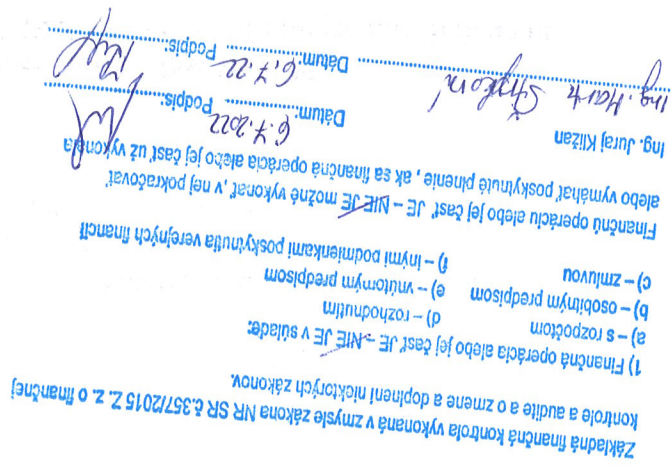 Základná finančná kontrola vykonaná v zmysle zákona NR SR č.357/2015 Z. z. o finančnej
kontrole a audite a o zmene a doplnení niektorých zákonov.
1) Finančná operácia alebo jej časť JE – NIE JE v súlade:
a) – s rozpočtom d) – rozhodnutím
b) – osobitným predpisom e) – vnútorným predpisom
c) – zmluvou f) – inými podmienkami poskytnutia verejných financií
Finančnú operáciu alebo jej časť JE – NIE JE možné vykonať, v nej pokračovať
alebo vymáhať poskytnuté plnenie, ak sa finančná operácia alebo jej časť už vykonala
Ing. Juraj Kližan Dátum: 6.7.2022 Podpis:
Ing. Dátum: 6.7.22 Podpis: